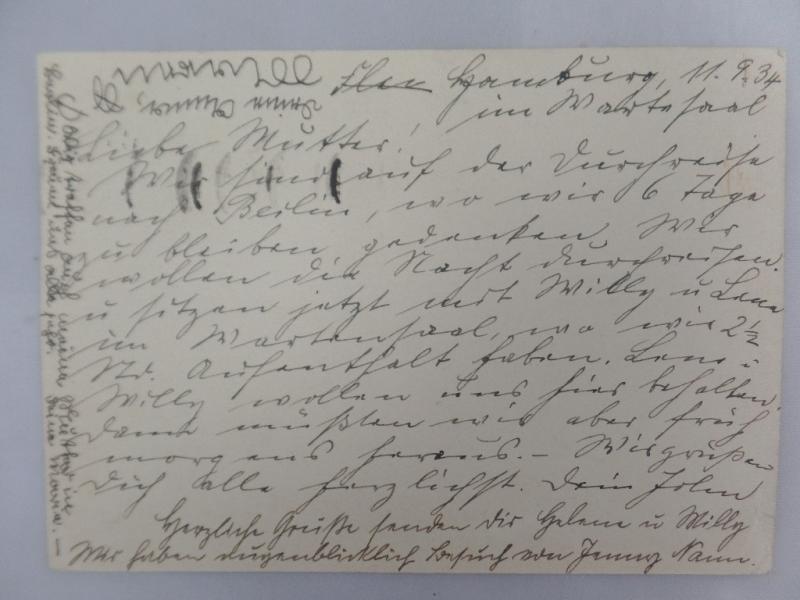 Hamburg, 11. 9. 34
im Wartesaal
Liebe Mutter!
Wir sind auf der Durchreise
nach Berlin, wo wir 6 Tage
zu bleiben gedenken. Wir
wollen die Nacht durchreisen.
u sitzen jetzt mit Willy u Lene
im Wartensaal, wo wir 2½
Std. Aufenthalt haben. Lene u
Willy wollen uns hier behalten,
dann müßten wir aber früh
morgens heraus. – Wir grüßen
Dich alle herzlichst. Dein
Herzliche Grüße senden dir Helene u Willy
Wir haben augenblicklich Besuch von Jenny Nann.